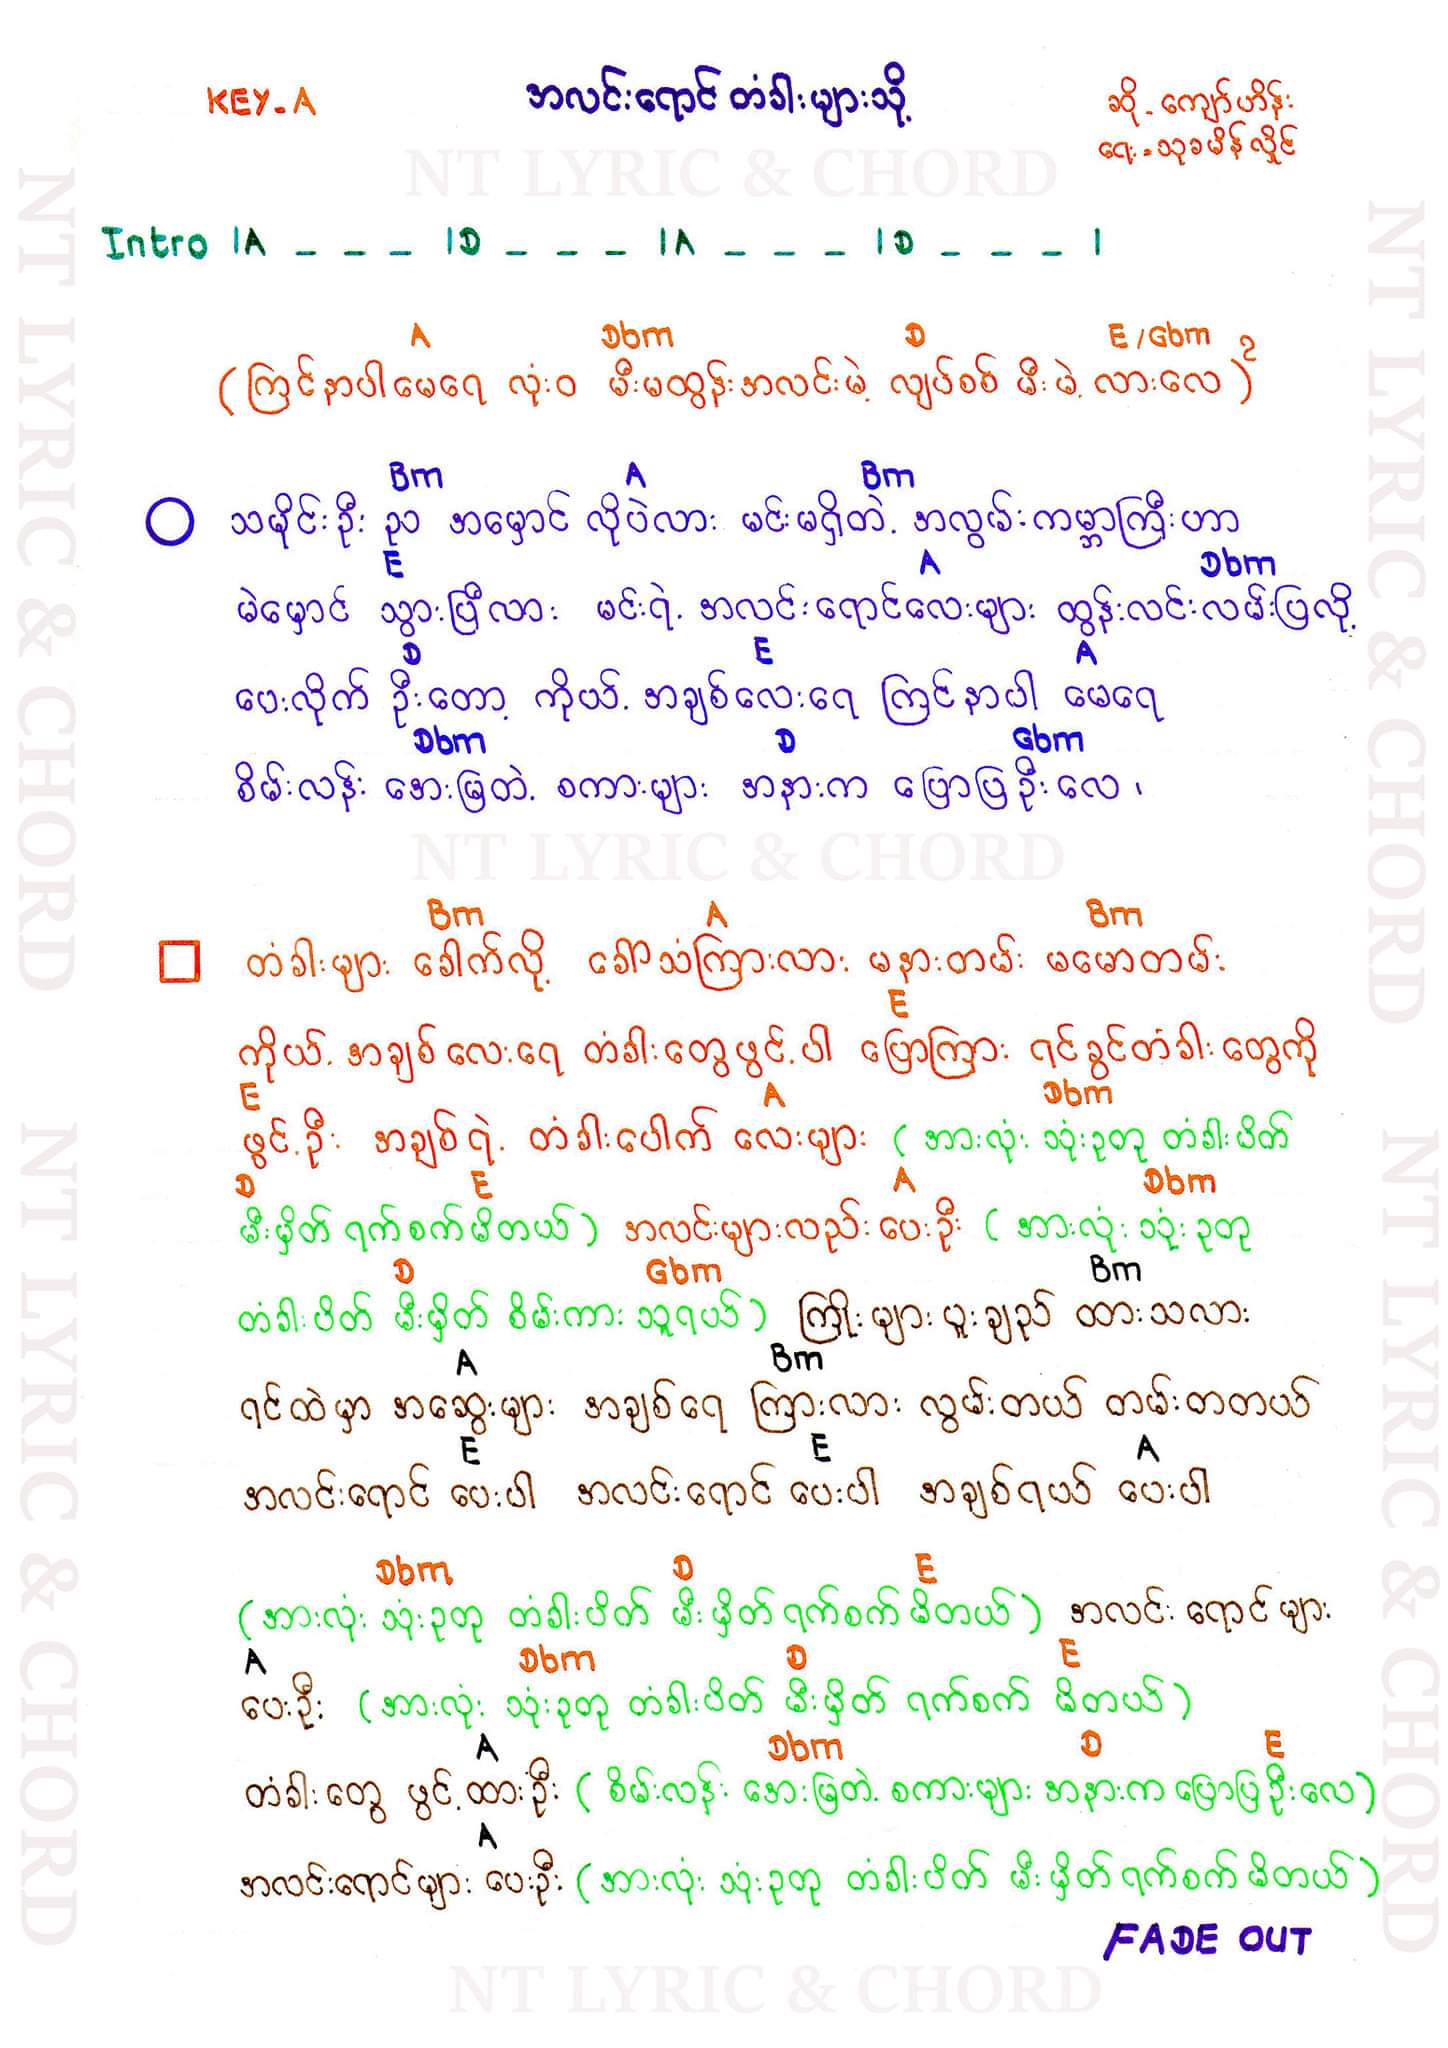 KEY-A
အလင်းရောင် တံခါးများသို့
ဆို - ကျော်ဟိန်း
ရေး - သုခမိန်လှိုင်
NT LYRIC & CHORD
Intro |A _ _ _ |D _ _ _ |A _ _ _ |D _ _ _ |
A Dbm D E/Gbm
(ကြင်နာပါမေရေ လုံးဝ မီးမထွန်းအလင်းမဲ့ လျှပ်စစ် မီးမဲ့ လားလေ)2
Bm A Bm
သမိုင်းဦး ဥသ အမှောင် လိုပဲလား မင်းမရှိတဲ့ အလွမ်းကမ္ဘာကြီးဟာ
E A Dbm
မဲမှောင် သွားပြီလား မင်းရဲ့ အလင်းရောင်လေးများ ထွန်းလင်းလမ်းပြလို့
D E A
ပေးလိုက် ဦးတော့ ကိုယ့် အချစ်လေးရေ ကြင်နာပါ မေရေ
Dbm D Gbm
စိမ်းလန်း အေးမြတဲ့ စကားများ အနားက ပြောပြဦးလေ၊
NT LYRIC & CHORD
Bm A Bm
တံခါးများ ခေါက်လို့ ခေါ်သံကြားလား မနားတမ်း မမောတမ်း
E
ကိုယ့် အချစ်လေးရေ တံခါးတွေဖွင့်ပါ ပြောကြား ရင်ခွင်တံခါးတွေကို
E A Dbm
ဖွင့်ဦး အချစ်ရဲ့ တံခါးပေါက် လေးများ (အားလုံး သုံးဥတု တံခါးပိတ်
D E A Dbm
မီးမှိတ် ရက်စက်မိတယ်) အလင်းများလည်းပေးဦး (အားလုံး သုံးဥတု
D Gbm Bm
တံခါးပိတ် မီးမှိတ် စိမ်းကားသူရယ်) ကြိုးများပူးချည် ထားသလား
A Bm
ရင်ထဲမှာ အဆွေးများ အချစ်ရေ ကြားလား လွမ်းတယ် တမ်းတတယ်
E E A
အလင်းရောင် ပေးပါ အလင်းရောင် ပေးပါ အချစ်ရယ် ပေးပါ
Dbm D E
(အားလုံး သုံးဥတု တံခါးပိတ် မီးမှိတ်ရက်စက်မိတယ်) အလင်းရောင်များ
A Dbm D E
ပေးဦး (အားလုံး သုံးဥတု တံခါးပိတ် မီးမှိတ် ရက်စက် မိတယ်)
A Dbm D E
တံခါးတွေ ဖွင့်ထားဦး (စိမ်းလန်း အေးမြတဲ့ စကားများ အနားကပြောပြဦးလေ)
A
အလင်းရောင်များ ပေးဦး (အားလုံး သုံးဥတု တံခါးပိတ် မီးမှိတ်ရက်စက်မိတယ်)
FADE OUT
NT LYRIC & CHORD
NT LYRIC & CHORD
NT LYRIC & CHORD
NT LYRIC & CHORD
NT LYRIC & CHORD